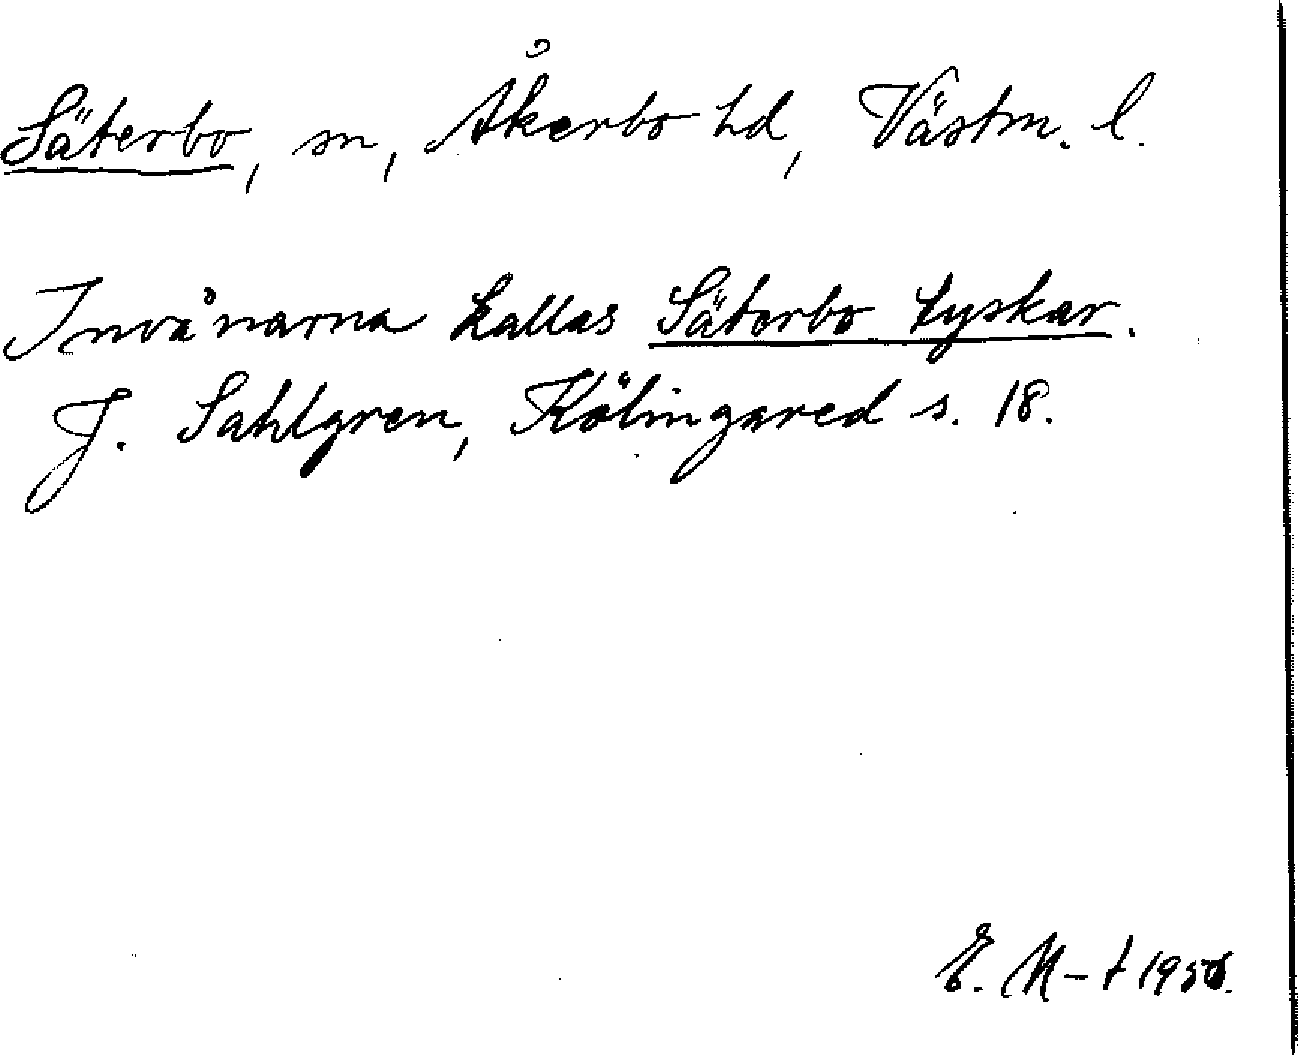 Säterbo, sn, Åkerbo hd, Västm. l.
Invånarna kallas Säterbo tyskar.
J. Sahlgren, Kölingared s. 18.
E. M-t